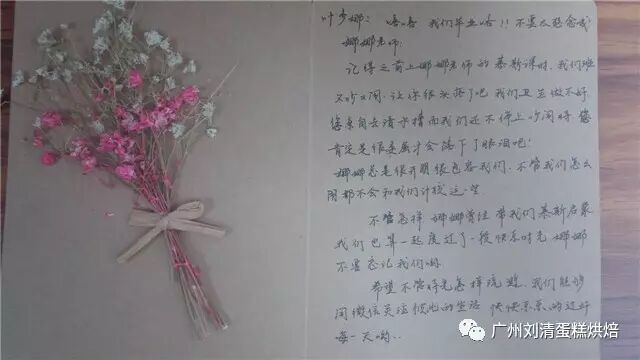 叶步娜：嘻嘻 我们毕业咯！！不要太想念哦！
娜娜老师：
记得之前上娜娜老师的慕斯课时，我们班
又吵又闹，让你很头疼了吧 我们卫生做不好
您亲自去清水槽而我们还不停上吵闹时 您
肯定是很委屈才会落下了眼泪吧！
娜娜总是很开朗很包容我们，不管我们怎么
闹都不会和我们计较这一切
不管怎样 娜娜曾经带我们慕斯启蒙
我们也算一起度过了一段快乐时光 娜娜
不要忘记我们哟
希望不管时光怎样流逝，我们能够
用微信关注彼此的生活 快快乐乐的过好
每一天哟..
广州刘清蛋糕烘焙